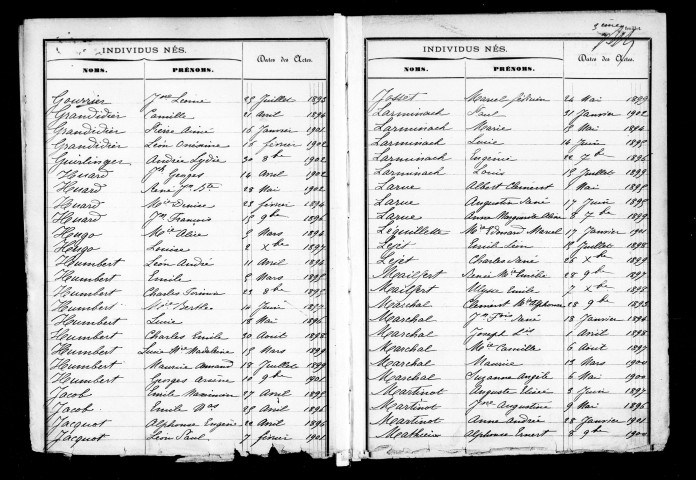 INDIVIDUS NÉS.
NOMS. PRÉNOMS. Dates des Actes.
Gourrier Jne Lenne 23 Juillet 1893
Grandidier Camille 21 Avril 1896
Grandidier Aimé 16 Janvier 1901
Grandidier Léon Onésime 16 février 1902
Guirlinger Andrée Lydie 30 8bre 1902
Huard Jh Georges 14 Avril 1902
Huard René Jn Bte 28 Mai 1902
Huard Mie Denise 23 février 1894
Huard Jn François 15 9bre 1896
Hugo Mie Alice 8 Mars 1896
Hugo Louise 2 Xbre 1897
Humbert Léon André 11 Avril 1894
Humbert Emile 8 Mars 1895
Humbert Charles 23 8bre 1895
Humbert Berthe 10 Juin 1897
Humbert Lucie 18 Mai 1896
Humbert Charles Emile 30 Août 1898
Humbert Lucie Mie Madeleine 15 Mars 1899
Humbert Maurice Armand 18 Juillet 1899
Humbert Georges Arsène 10 9bre 1901
Jacob Emile Maximin 27 Avril 1895
Jacob Emile Nas 25 Avril 1896
Jacquot Alphonse Eugène 22 Avril 1896
Jacquot Léon Paul 7 février 1901
feuillet
INDIVIDUS NÉS.
NOMS. PRÉNOMS. Dates des Actes.
Josset Marcel 24 Mai 1899
Larminach Paul 21 Janvier 1902
Larminach Marie 8 Mai 1894
Larminach Lucie 14 Juin 1895
Larminach Eugénie 22 7bre 1896
Larminach Louis 15 Juillet 1899
Larue Albert Clément 9 Mai 1895
Larue Augustin René 17 Juin 1898
Larue Anne Marguerite 8 7bre 1899
Lequillette Mie Edmond Marcel 17 Janvier 1901
Lejet Emile Léon 18 Juillet 1898
Lejet Charles René 26 Xbre 1899
Mailfert Renée Mie Emilie 28 9bre 1897
Mailfert Ulysse Emile 7 Xbre 1895
Marchal Clément Mie Alphonse 28 9bre 1893
Marchal Jn Fois René 18 Janvier 1896
Marchal Joseph Lis 1 Avril 1898
Marchal Mie Camille 6 Août 1897
Marchal Maurice 13 Mars 1900
Marchal Suzanne Angèle 6 Mai 1900
Martinot Auguste Elisée 3 Juin 1897
Martinot Jne Augustine 9 Mai 1896
Martinot Anne Andrée 28 Janvier 1901
Mathieu Alphonse Ernest 8 9bre 1900